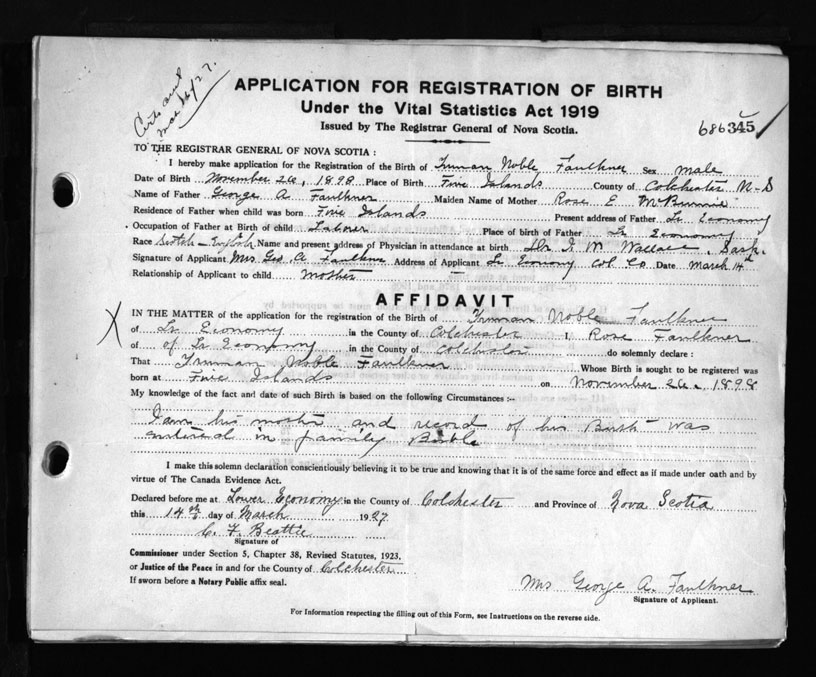 Certs and
Mar 16/27.
APPLICATION FOR REGISTRATION OF BIRTH
Under the Vital Statistics Act 1919
Issued by The Registrar General of Nova Scotia.
686345
TO THE REGISTRAR GENERAL OF NOVA SCOTIA:
I hereby make application for the Registration of the Birth of Truman Noble Faulkner Sex male
Date of Birth November 26, 1898 Place of Birth Five Islands County of Colchester N-S
Name of Father George A. Faulkner Maiden Name of Mother Rose E McBurnie
Residence of Father when child was born Five Islands Present address of Father Lr Economy
Occupation of Father at Birth of child Laborer Place of birth of Father Lr Economy
Race Scotch-English Name and present address of Physician in attendance at birth Dr. I M Wallace, Sask.
Signature of Applicant Mrs Geo. A. Faulkner Address of Applicant Lr Economy Col Co. Date March 14th
Relationship of Applicant to child mother
AFFIDAVIT
X
IN THE MATTER of the application for the registration of the Birth of Truman Noble Faulkner
of Lr Economy in the County of Colchester I, Rose Faulkner
of of Lr Economy in the County of Colchester do solemnly declare:
That Truman Noble Faulkner Whose Birth is sought to be registered was
born at Five Islands on November 26, 1898
My knowledge of the fact and date of such Birth is based on the following Circumstances:--
I am his mother and record of his Birth was
entered in family Bible
I make this solemn declaration conscientiously believing it to be true and knowing that it is of the same force and effect as if made under oath and by
virtue of The Canada Evidence Act.
Declared before me at Lower Economy in the County of Colchester and Province of Nova Scotia
this 14th day of March 1927
C. F. Beattie
Signature of
Commissioner under Section 5, Chapter 38, Revised Statutes, 1923.
or Justice of the Peace in and for the County of Colchester
If sworn before a Notary Public affix seal.
Mrs George A. Faulkner
Signature of Applicant.
For Information respecting the filling out of this Form, see Instructions on the reverse side.